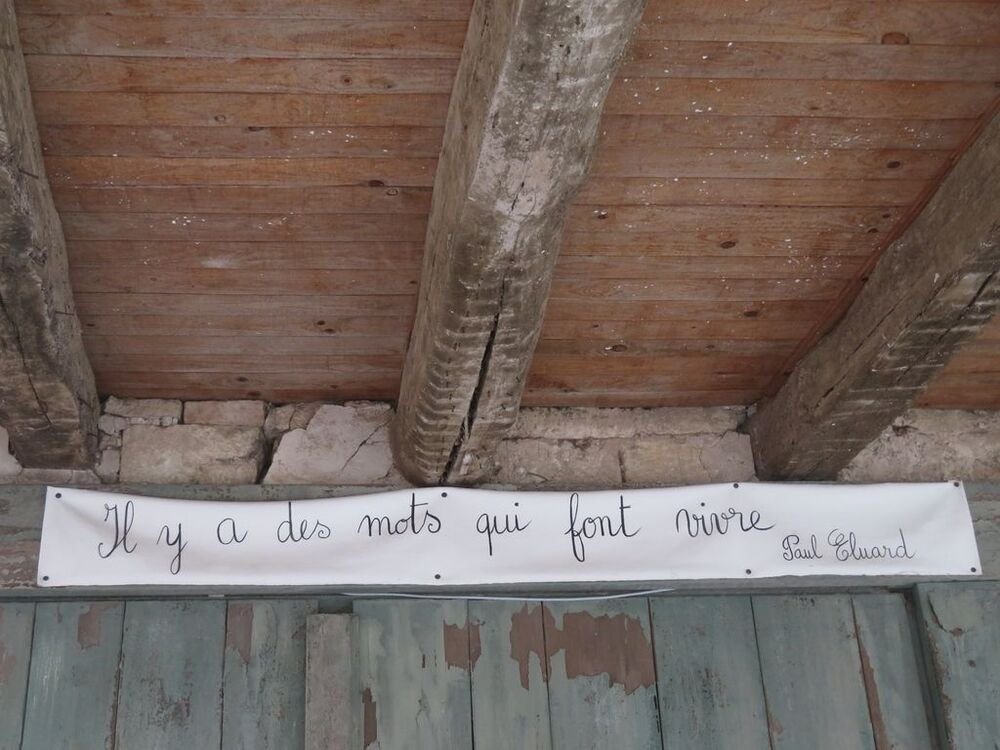 Il y a des mots qui font vivre
Paul Eluard